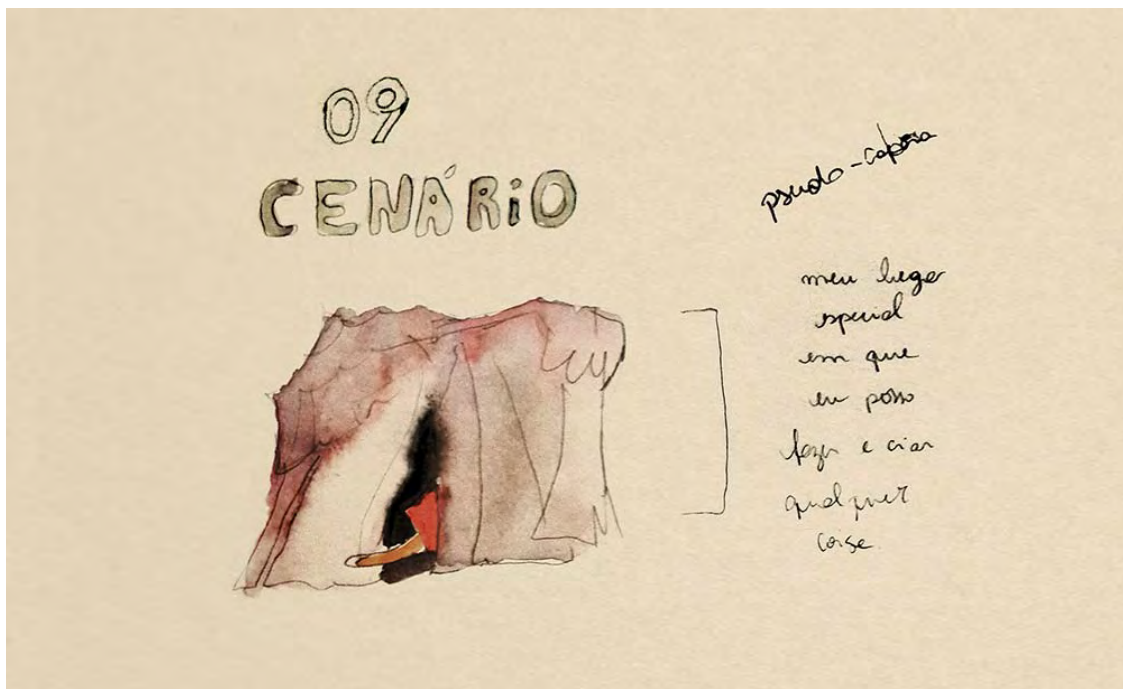 09
CENÁRiO
pseudo-cabana
meu lugar
especial
em que
eu posso
fazer e criar
qualquer
coisa